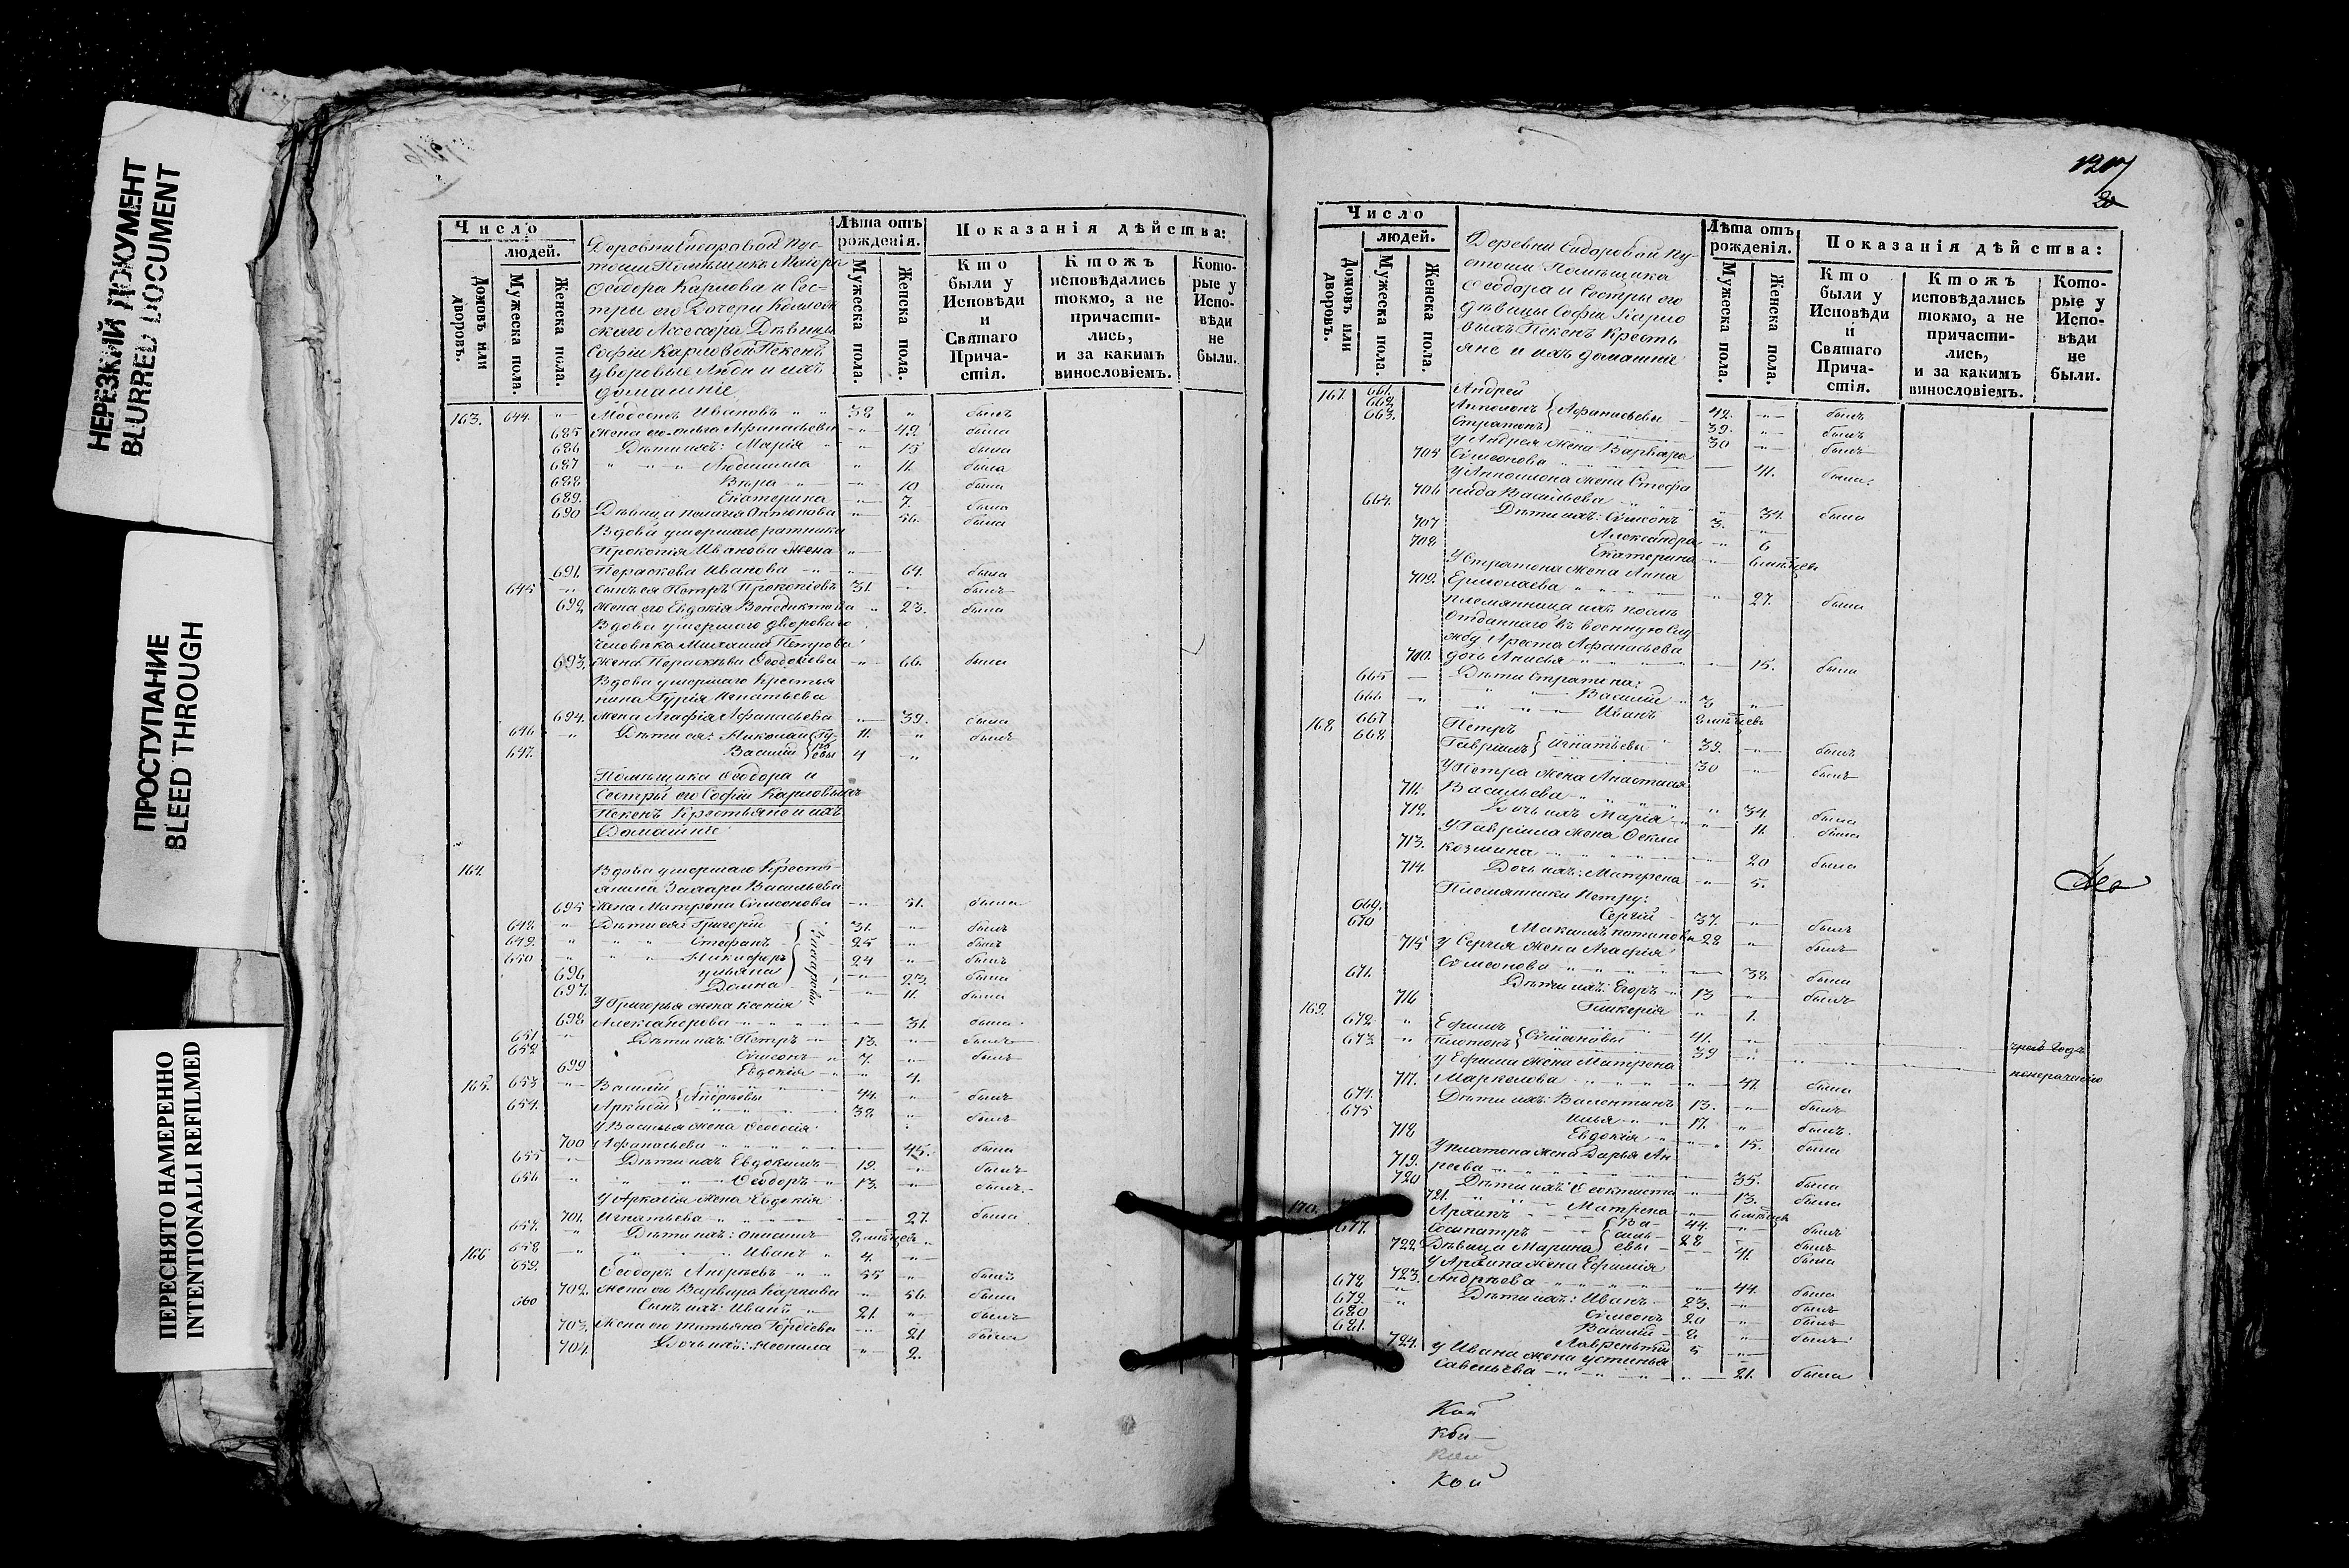 НЕРЕЗКИЙ ДОКУМЕНТ
BLURRED DOCUMENT
ПРОСТУПАНИЕ
BLEED THROUGH
ПЕРЕСНЯТО НАМЕРЕННО
INTENTIONALLI REFILMED
Число
людей.
Домовъ или дворовъ.
Мужеска пола.
Женска пола.
Деревни Сидоровой Пус-
тоши Помѣщика Маiора
Ѳеодора Карлова и Сес-
тры его Дочери Коллеж-
скаго Ассесора Дѣвицы
Софiи Карловой Пекенъ
дворовые Люди и ихъ
домашнiе
Лѣта отъ рожденiя.
Мужеска пола.
Женска пола.
Показанiя дѣйства:
Кто были у Исповѣди и Святаго Прича- стiя.
Ктожъ исповѣдались токмо, а не причасти- лись, и за какимъ винословiемъ.
Кото- рые у Испо- вѣди не были.
163. 644. Модестъ Ивановъ 38 былъ
685 Жена его Ольга Афанасьева 42. была
686 Дѣти ихъ: Марiя 15 была
687 Людмилла 11. была
688 Вѣра 10 была
689. Екатерина 7. была
690 Дѣвица Пелагiя Антонова 56. была
Вдова умершаго ратника
Прокопiя Иванова Жена
691. Параскева Иванова 64. была
645 Сынъ ея Петръ Прокопiевъ 31. былъ
692 Жена его Евдокiя Венедиктова 23. была
Вдова умершаго двороваго
Человѣка Михаила Петрова
693. Жена Параскѣва Ѳеодорова 66. была
Вдова умершаго Крестья
нина Гурiя Игнатьева
694. Жена Агафiя Афанасьева 39. была
646 Дѣти ея: Николай Гу- 11. былъ
647. Василiй рь евы 4
Помѣщика Ѳеодора и
Сестры его Софiи Карловыхъ
Пекенъ Крестьяне и ихъ
Домашнiе
164. Вдова умершаго Кресть
янина Захара Васильева
695 Жена Матрена Сiмеонова 51. была
648 Дѣти ея: Григорiй 31. былъ
649. Стефанъ Захаровы 25 былъ
650 Никифоръ 24 былъ
696 Ульяна 23. была
697. Домна 11. была
У Григорья жена Ксенiя
698 Александрова 31. была
651 Дѣти ихъ: Петръ 13. былъ
652 Сiмеонъ 7. былъ
699 Евдокiя 4.
165. 653 Василiй Андрѣевы 44. былъ
654. Аркадiй 38. былъ
У Василья жена Ѳеодосiя
700 Афанасьева 45. была
655 Дѣти ихъ Евдокимъ 19. былъ
656 Ѳеодоръ 13. былъ
У Аркадiя жена Евдокiя
701. Игнатьева 27. была
657. Дѣти ихъ:
658 Иванъ 4.
166 659. Ѳеодоръ Андрѣевъ 55 былъ
702. Жена его Варвара Карпова 56. была
660 Сынъ ихъ: Иванъ 21. былъ
703. Жена его Татьяна Гордѣева 21 была
704. Дочь ихъ: Неонила 2.
1207
20
Число
людей.
Домовъ или дворовъ.
Мужеска пола.
Женска пола.
Деревни Сидоровой Пу-
стоши Помѣщика
Ѳеодора и Сестры его
Дѣвицы Софiи Карло
выхъ Пекенъ Кресть
яне и ихъ домашнiе
Лѣта отъ рожденiя.
Мужеска пола.
Женска пола.
Показанiя дѣйства:
Кто были у Исповѣди и Святаго Прича- стiя.
Ктожъ исповѣдались токмо, а не причасти- лись, и за какимъ винословiемъ.
Кото- рые у Испо- вѣди не были.
167. 661. Андрей 42. былъ
662. Апполонъ Афанасьевы 39. былъ
663. Стратонъ 30 былъ
У Андрея Жена Варвара
705 Сiмеонова 41. была
У Апполона жена Стефа
706 нида Васильева 34. была
664. Дѣти ихъ: Сiмеонъ 3.
707 Александра 6
708 Екатерина 6 мѣсяцевъ
У Стратона жена Анна
709. Ермолаева 27. была
племянница ихъ послѣ
отданнаго въ военную слу
жбу Ареѳа Афанасьева
710. дочь Анисья 15. была
665 Дѣти Стратона:
666 Василiй 3
Иванъ
168 667 Петръ 39. былъ
668 Гаврiилъ Игнатьевы 30 былъ
У Петра жена Анастасiя
711. Васильева 34. была
712. Дочь ихъ Марiя 11. была
У Гаврiила жена Ѳекла
713. Козмина 20 была
714. Дочь ихъ: Матрена 5.
Племянники Петру:
669. Сергiй 37. былъ
670 Максимъ Потаповы 28 былъ
715 у Сергiя жена Агафiя
Сiмеонова 38 была
671. Дѣти ихъ: Егоръ 13 былъ
716 Гликерiя 1.
169. 672 Ефимъ 41. чрезъ годъ
673 Платонъ Сiмеоновы 39 понераденiю
у Ефима жена Матрена
717. Маркелова 47. была
674. Дѣти ихъ: Валентинъ 13. былъ
675 Илья 17. былъ
718 Евдокiя 15. была
У Платона жена Дарья Ан
719. реева 35. была
720 Дѣти ихъ: Ѳеоктиста 13. была
721. Матрена 6 мѣсяцъ
170. Архипъ Ва- 44. былъ
677. Сосипатръ силь- 28 былъ
722. Дѣвица Марина евы 41. была
У Архипа жена Ефимiя
723. Андрѣева 44. была
678 Дѣти ихъ: Иванъ 23. былъ
679. Сiмеонъ 20 былъ
680 Василiй 8 былъ
681. Лаврентiй 5
724. у Ивана жена Устинья
Савельева 21. была
Кой
Кой